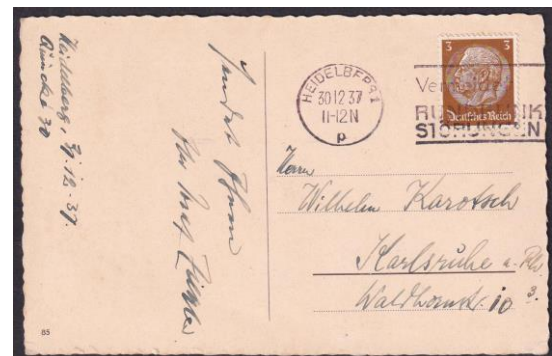 Heidelberg, 29.12.37.
30
sendet Ihnen
85
HEIDELBERG 1
30.12.37
11-12N
p
3 3
Deutsches Reich
RUNDFUNK
STÖRUNGEN
Herrn
Wilhelm Karotsch
Karlsruhe a. Rh.
Waldhornstr. 10
3.